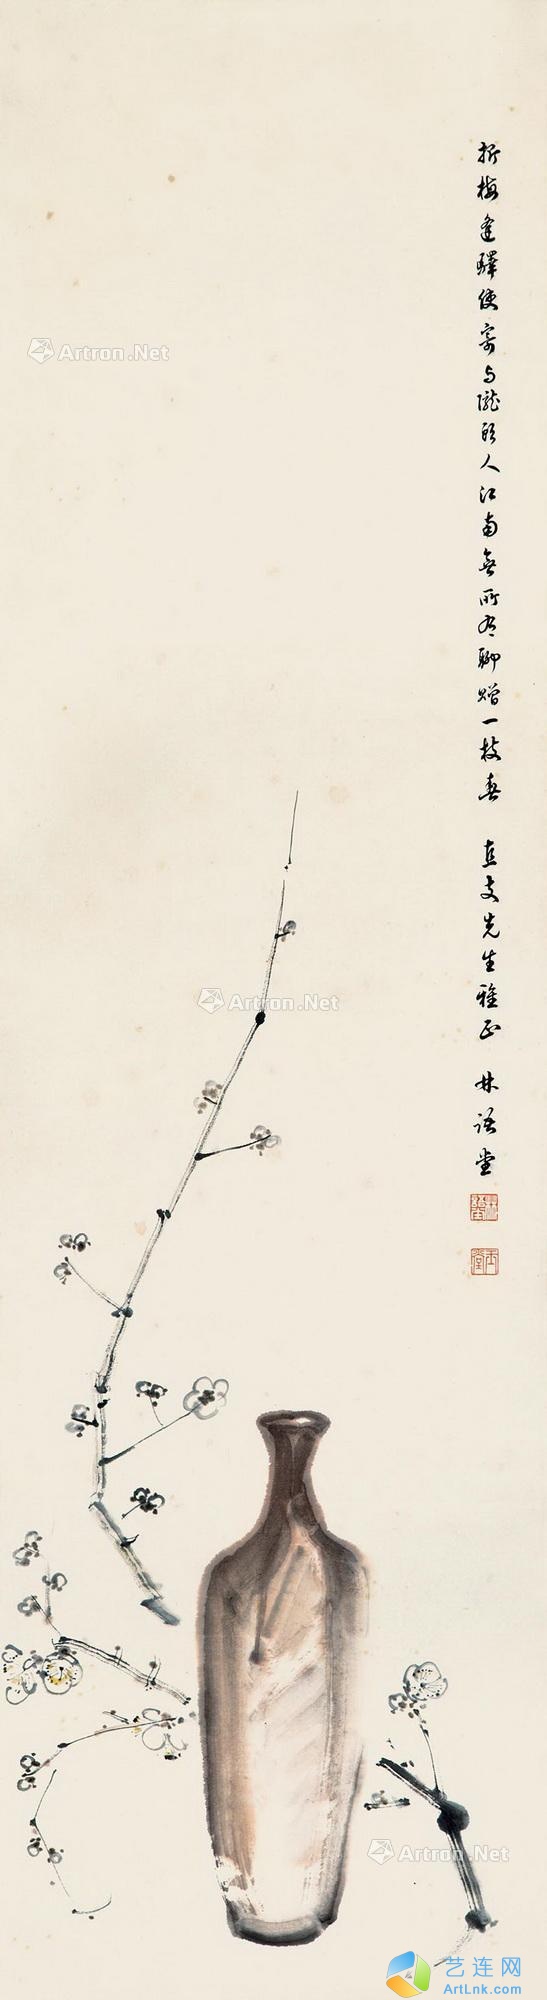 折梅逢驛使寄与隴頭人江南無所有聊贈一枝春 直支先生雅正 林語堂
Artron.Net
Artron.Net
Artron.Net
艺连网
ArtLnk.com